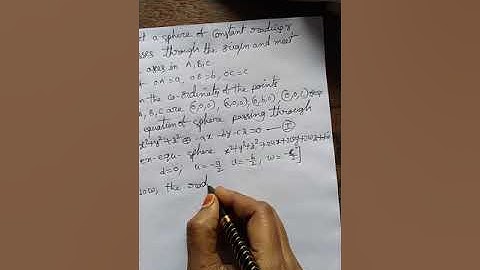 t a sphere of constant radius r,
sses through the origin and meet
axes in A, B, C
t OA=a, OB=b, OC=c
n the co-ordinates of the points
A, B, C are (0,0,0), (a,0,0), (0,b,0), (0,0,c)
equation of sphere passing through
x²+y²+z² -ax-by-cz=0 — I
en-equ sphere x²+y²+z²+2ux+2vy+2wz+d=0
d=0, u=-a/2 v=-b/2, w=-c/2]
now, the rad